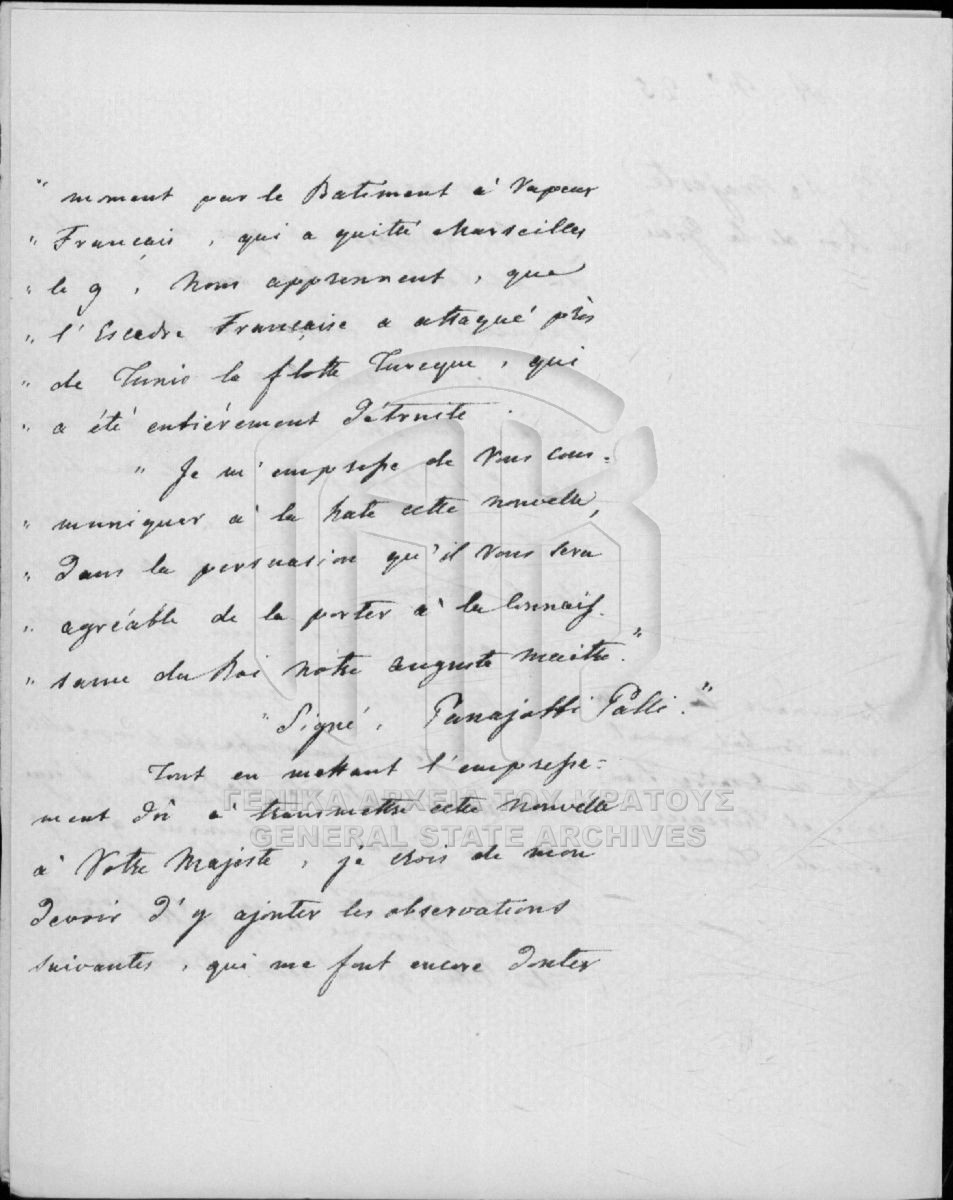 " moment par le Batiment à Vapeur
" Français, qui a quitté Marseilles
" le 9, nous apprennent, que
" l'Escadre Française a attaqué près
" de Tunis la flotte Turcque, qui
" a été entièrement détruite.
" Je m'empresse de Vous com=
" muniquer à la hate cette nouvelle,
" dans la persuasion qu'il Vous sera
" agréable de la porter à la connais-
" sance du Roi notre auguste maitre."
" Signé, Panajotti Palli."
Tout en mettant l'empresse=
ment dû à transmettre cette nouvelle
à Votre Majesté, je crois de mon
devoir d'y ajouter les observations
suivantes, qui me font encore douter
ΓΕΝΙΚΑ ΑΡΧΕΙΑ ΤΟΥ ΚΡΑΤΟΥΣ
GENERAL STATE ARCHIVES